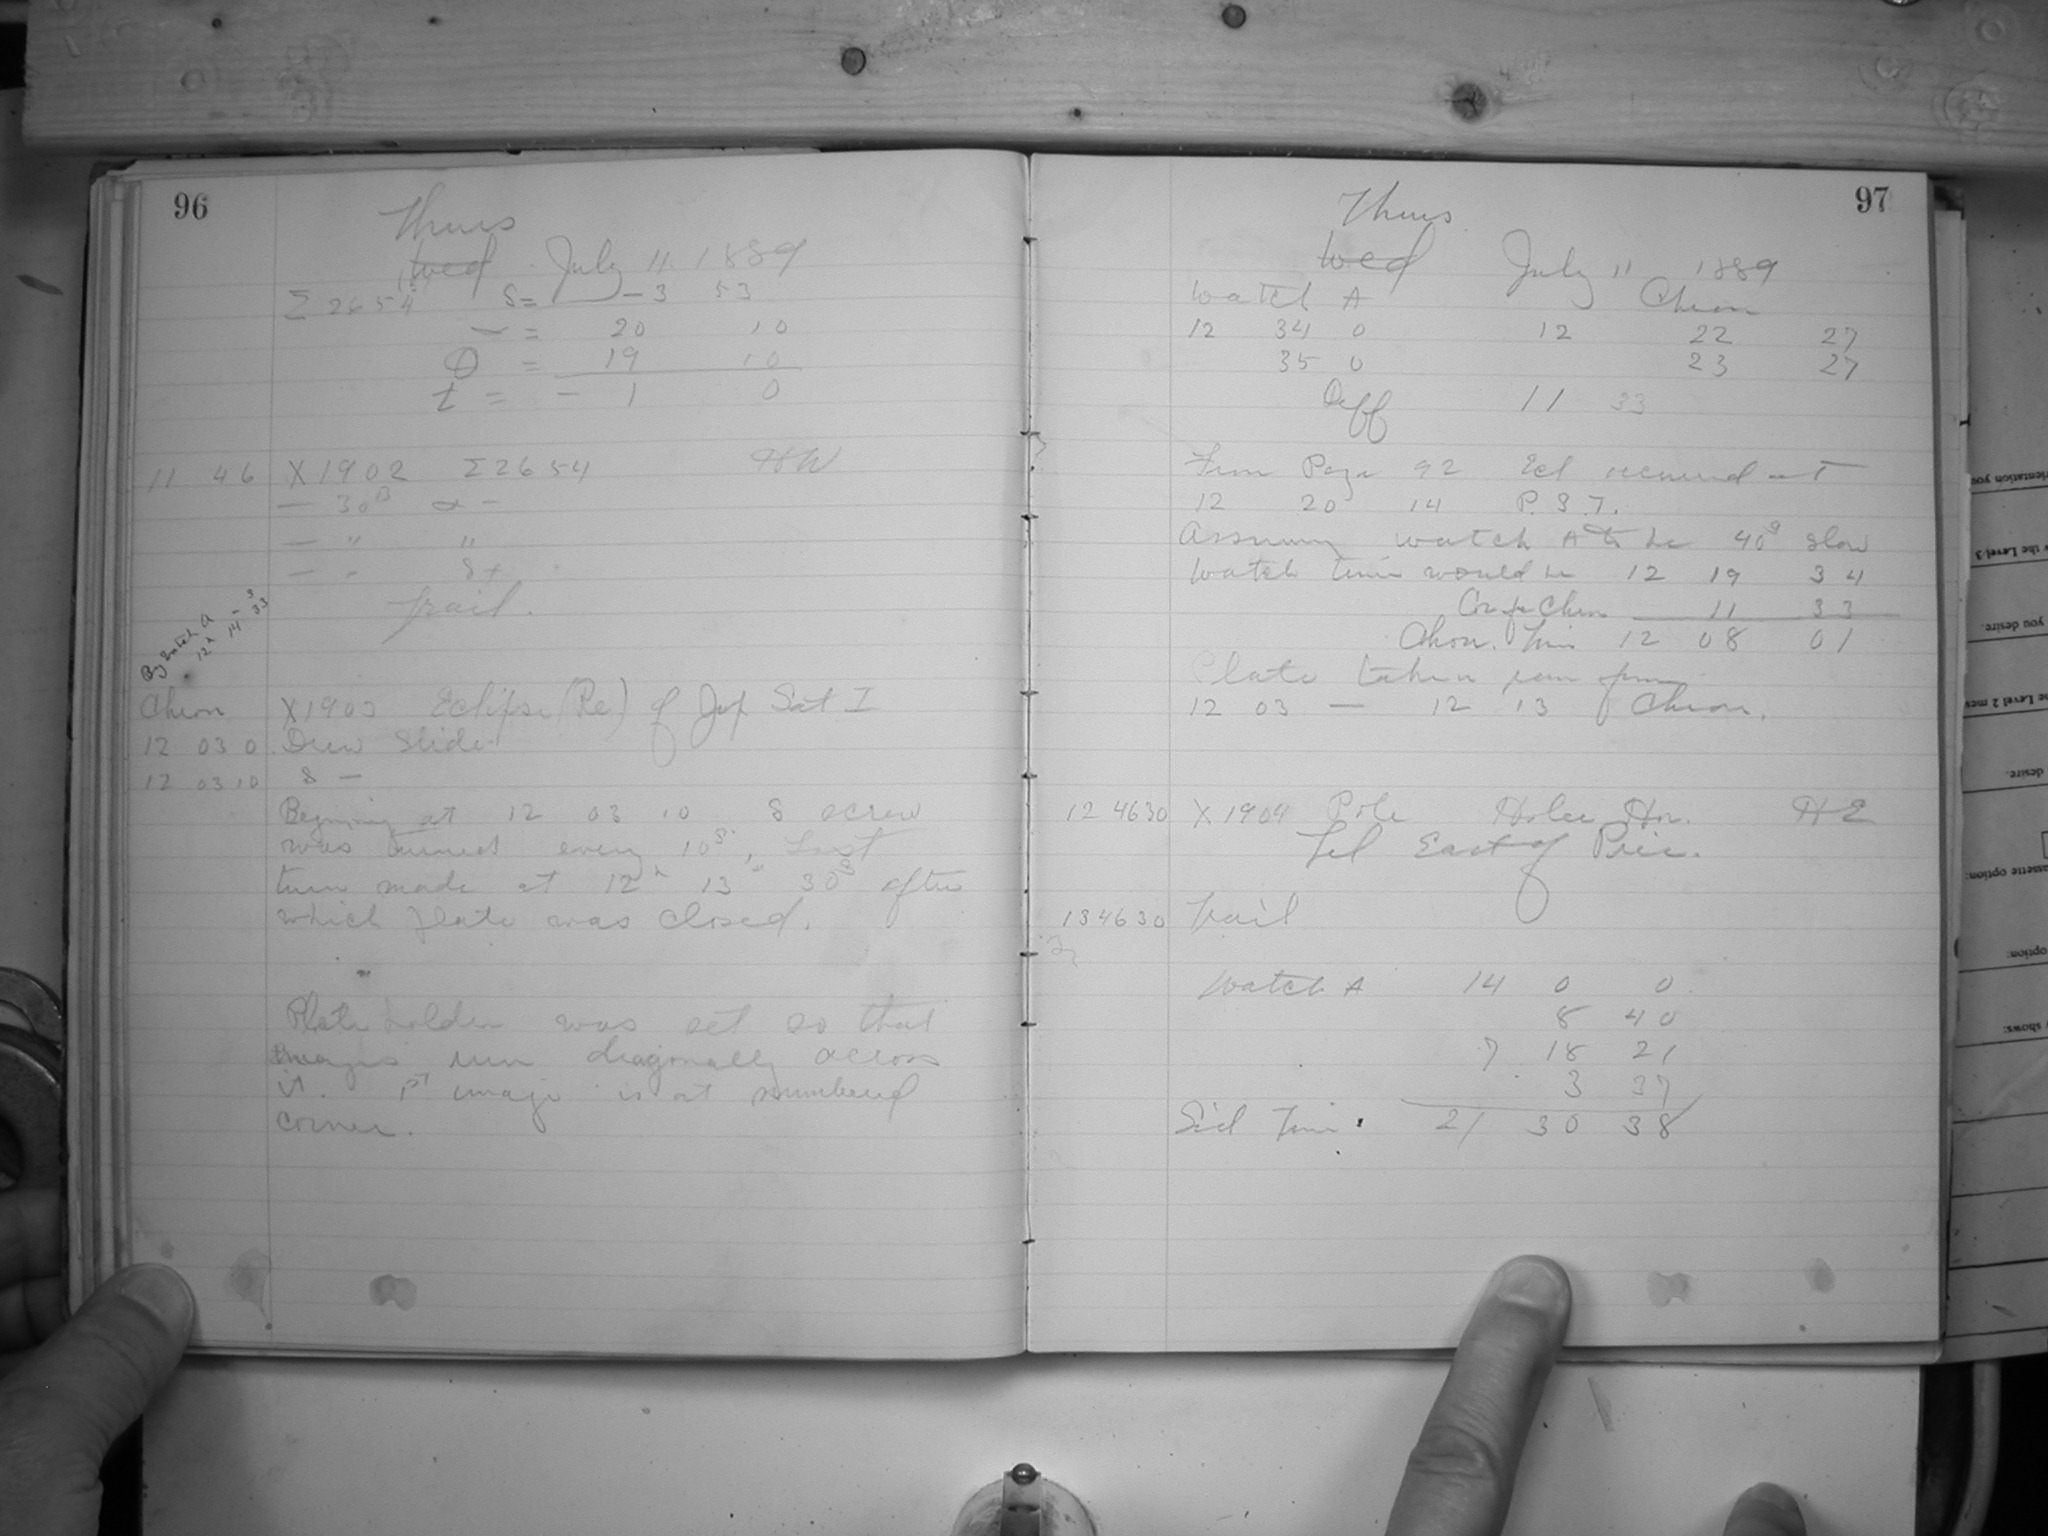 96
Thurs
Wed July 11 1889
Σ 2654 δ = -3 53
= 20 10
θ = 19 10
t = - 1 0
11 46 X1902 Σ2654 HW
— 30
— " "
— " δ+
Trail.
By Watch A
12 14 33
Chron X1903 Eclipse (Re) of Jup Sat I
12 03 0 Drew Slide
12 03 10 δ —
Beginning at 12 03 10 δ screw
was turned every 10s. Last
turn made at 12h 13m 30s after
which plate was closed.
Plate holder was set so that
images run diagonally across
it. 1st image is at numbered
corner.
97
Thurs
Wed July 11 1889
Watch A Chron
12 34 0 12 22 27
35 0 23 27
Diff 11 33
From Page 92 Ecl occurred at
12 20 14 P.S.T.
Assuming watch A to be 40s slow
Watch time would be 12 19 34
Cor for Chron 11 33
Chron. Time 12 08 01
Plate taken ran from
12 03 — 12 13 of Chron.
12 46 30 X 1904 Pole HE
Tel East of Pier.
13 46 30 Trail
Watch A 14 0 0
8 40
7 18 21
3 37
Sid Time 21 30 38